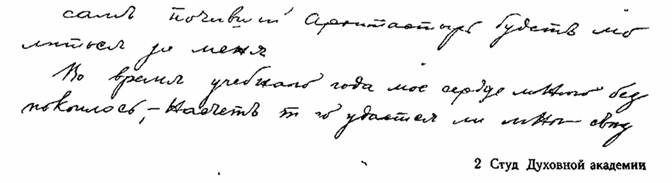 самъ почившій Архипастырь будетъ мо
литься за меня
Во время учебнаго года мое сердце много без
покоилось, – насчетъ того удастся ли мнѣ
2 Студ Духовной академии